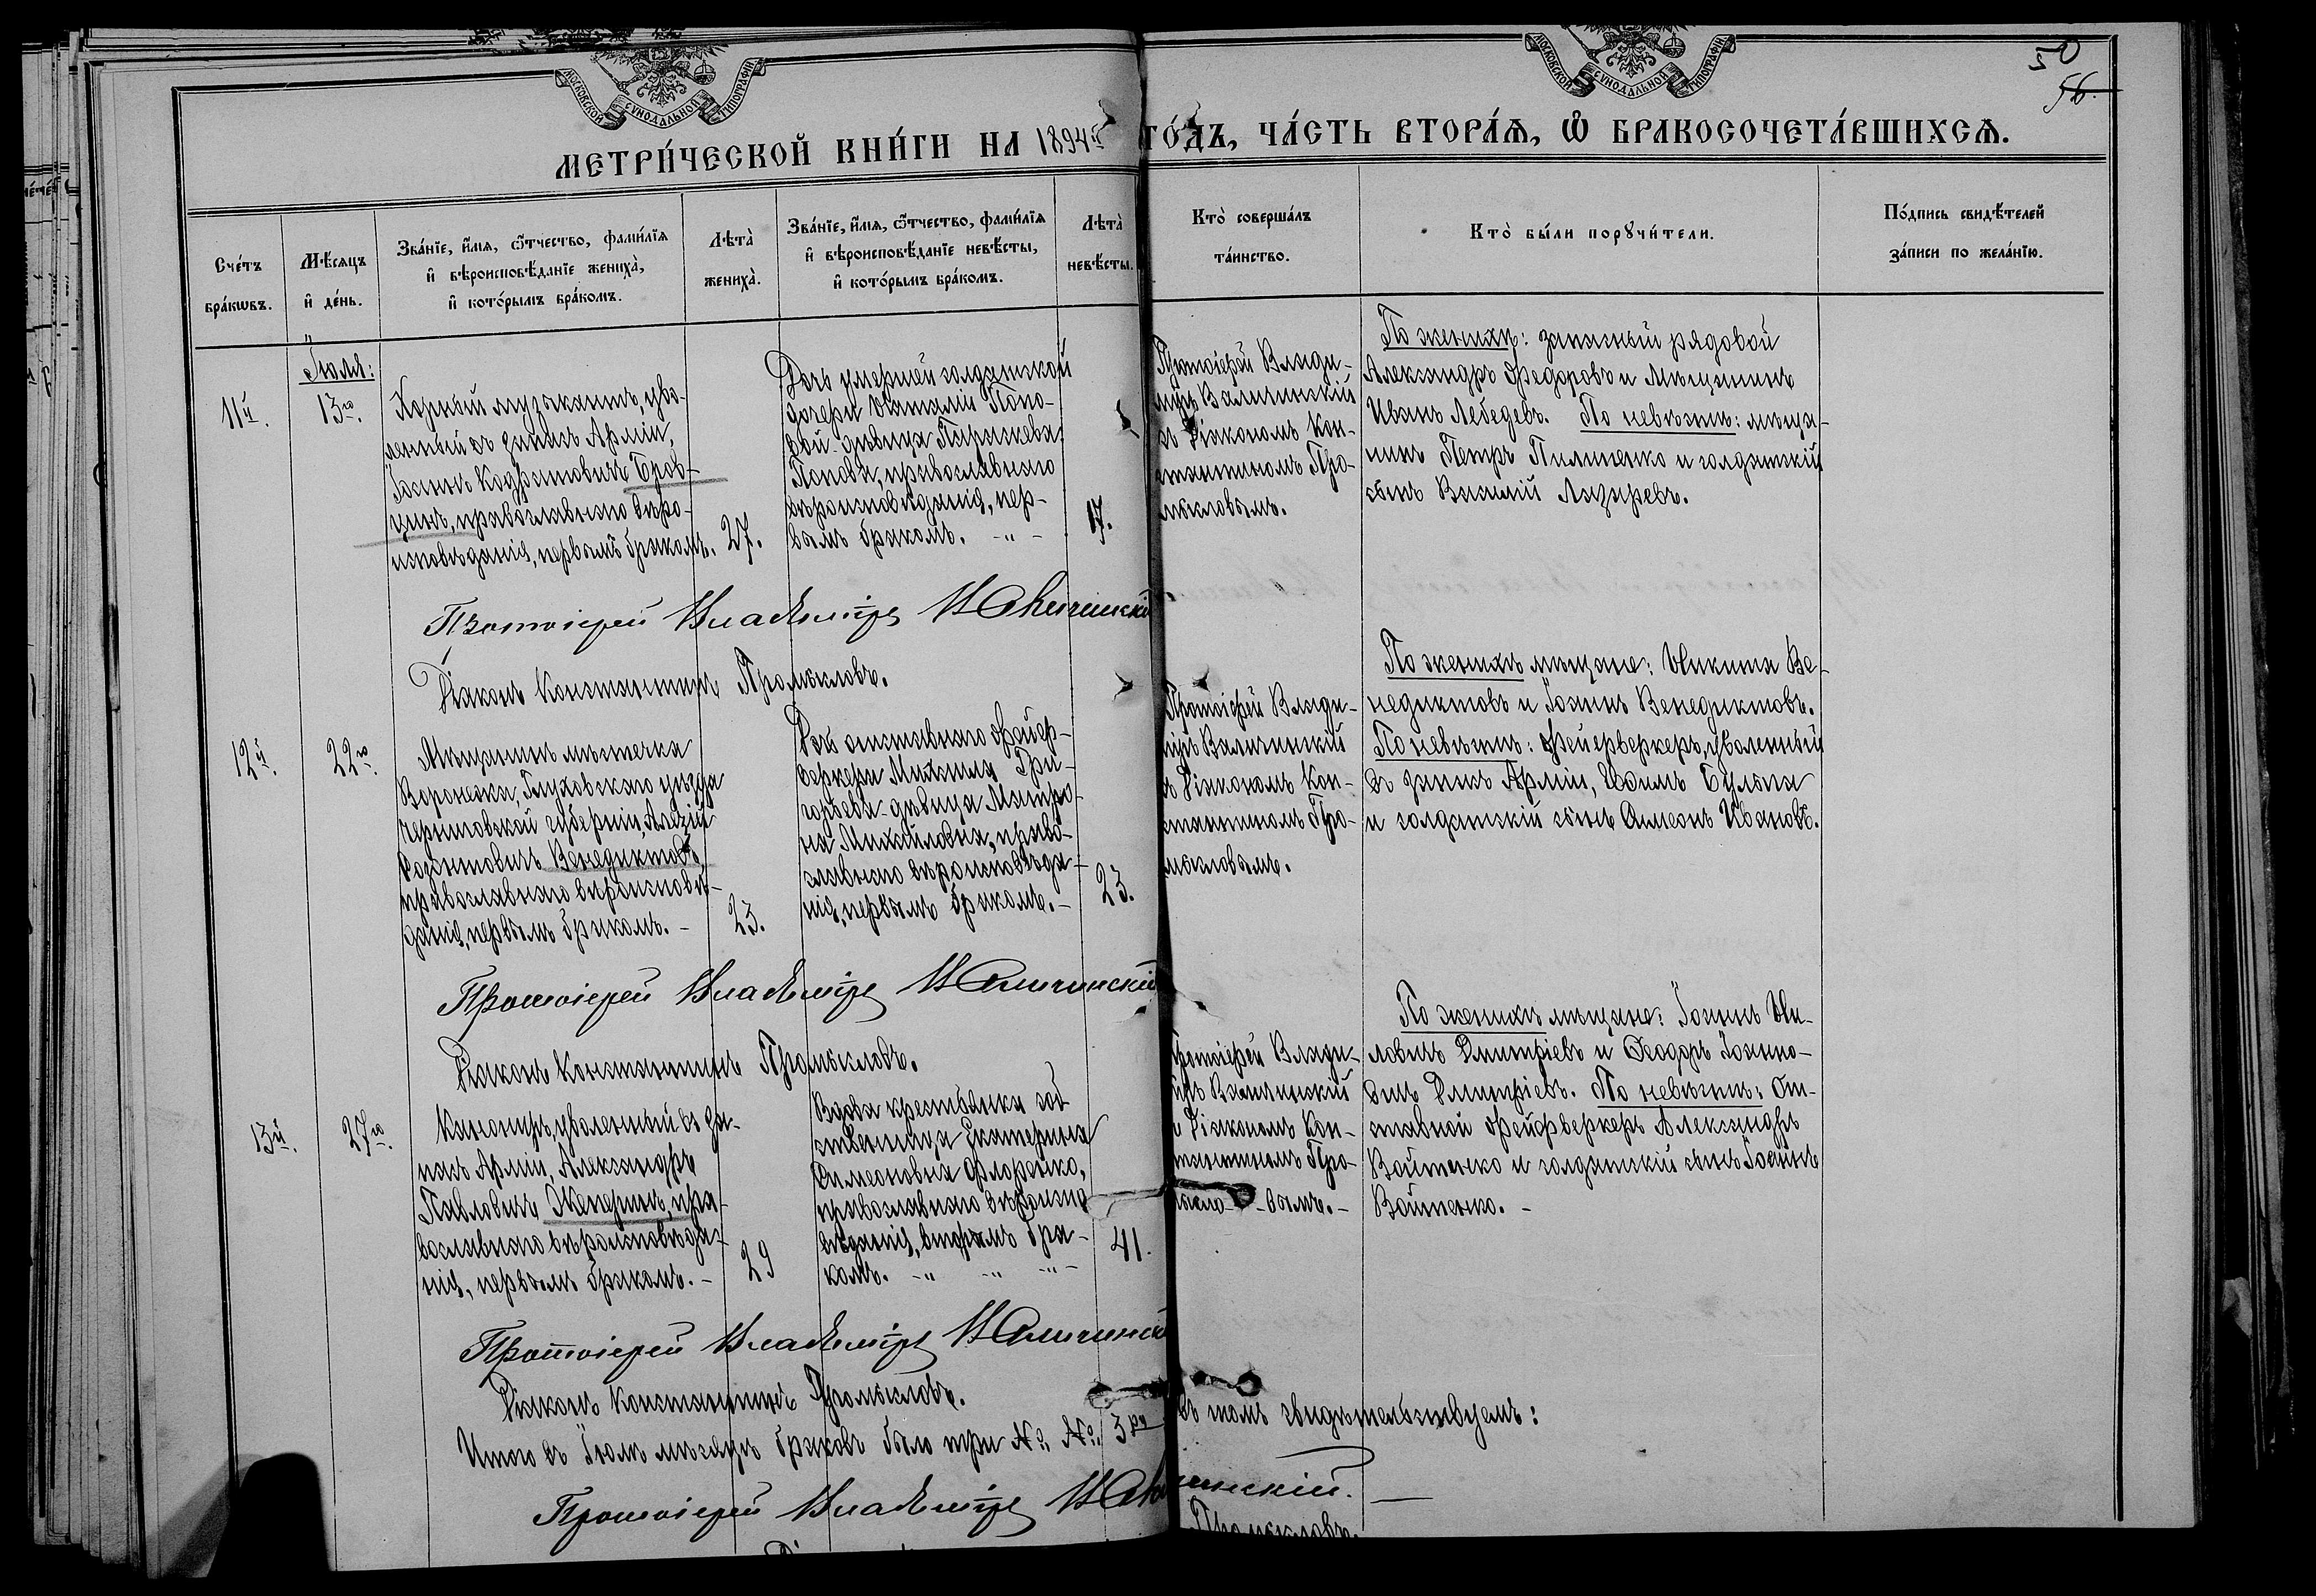 50
56.
МОСКОВСКОЙ СѴНОДАЛЬНОЙ ТИПОГРАФІИ
МОСКОВСКОЙ СѴНОДАЛЬНОЙ ТИПОГРАФІИ
МЕТРИ́ЧЕСКОЙ КНИ́ГИ НА 1894й ГО́ДЪ, ЧА́СТЬ ВТОРА́Ѧ, Ѽ БРАКОСОЧЕТА́ВШИХСѦ.
Сче́тъ
бра́кѡвъ.
Мѣ́сѧцъ
и҆ де́нь.
Зва́нїе, и҆́мѧ, ѻ҆́тчество, фами́лїѧ
и҆ вѣроисповѣ́данїе жениха̀,
и҆ кото́рымъ бра́комъ.
Лѣта̀
жениха̀.
Зва́нїе, и҆́мѧ, ѻ҆́тчество, фами́лїѧ
и҆ вѣроисповѣ́данїе невѣ́сты,
и҆ кото́рымъ бра́комъ.
Лѣта̀
невѣ́сты.
Кто̀ соверша́лъ
та́инство.
Кто̀ бы́ли порꙋчи́тели.
По́дпись свидѣ́телей
за́писи по жела́нїю.
Іюля:
11й.
13го.
Хорный музыкантъ, уво-
ленный въ запасъ Арміи,
Іоаннъ Кодратовичъ Бров-
цинъ, православнаго вѣро-
исповѣданія, первымъ бракомъ.
27.
Дочь умершей солдатской
дочери Наталіи Попо-
вой - дѣвица
Попова, православнаго
вѣроисповѣданія, пер-
вымъ бракомъ. - " -
17.
Протоіерей Влади-
міръ Валичинскій
съ Діакономъ Кон-
стантиномъ Про-
мысловымъ.
По женихѣ: запасный рядовой
Александръ Федоровъ и Мѣщанинъ
Иванъ Лебедевъ. По невѣстѣ: мѣща-
нинъ Петръ Пилипенко и солдатскій
сынъ Василій Лазаревъ.
Протоіерей Владиміръ Валичинскій
Діаконъ Константинъ Промысловъ.
12й.
22го.
Мѣщанинъ мѣстечка
Воронежа, Глуховскаго уѣзда
Черниговской губерніи, Алексій
Венедиктовъ,
православнаго вѣроисповѣ-
данія, первымъ бракомъ. -
23.
Дочь отставнаго фейер-
веркера Михаила Гри-
горьева - дѣвица Матро-
на Михайловна, право-
славнаго вѣроисповѣда-
нія, первымъ бракомъ. -
23.
Протоіерей Влади-
міръ Валичинскій
съ Діакономъ Кон-
стантиномъ Про-
мысловымъ.
По женихѣ мѣщане: Никита Ве-
недиктовъ и Іоаннъ Венедиктовъ.
По невѣстѣ: Фейерверкеръ, уволенный
въ запасъ Арміи, Булыга
и солдатскій сынъ Симеонъ Ивановъ.
Протоіерей Владиміръ Валичинскій
Діаконъ Константинъ Промысловъ.
13й.
27го.
Канониръ, уволенный въ за-
пасъ Арміи, Александръ
Павловичъ Жемеринъ, пра-
вославнаго вѣроисповѣда-
нія, первымъ бракомъ. -
29
Вдова крестьянка соб
ственница Екатерина
Симеоновна Флоренко,
православнаго вѣроиспо
вѣданія, вторымъ бра-
комъ. - " - " - " -
41.
Протоіерей Влади-
міръ Валичинскій
съ Діакономъ Кон-
стантиномъ Про-
мысло - вымъ. -
По женихѣ мѣщане: Іоаннъ
ловичъ Дмитріевъ и Ѳеодоръ Іоанно-
вичъ Дмитріевъ. По невѣстѣ: От-
ставной фейерверкеръ Александръ
Войтенко и солдатскій сынъ Іоаннъ
Войтенко. -
Протоіерей Владиміръ Валичинскій
Діаконъ Константинъ Промысловъ.
Итого въ Іюлѣ мѣсяцѣ браковъ было три №. №. 3ри въ томъ свидѣтельствуемъ:
Протоіерей Владиміръ Валичинскій. —
Промысловъ.